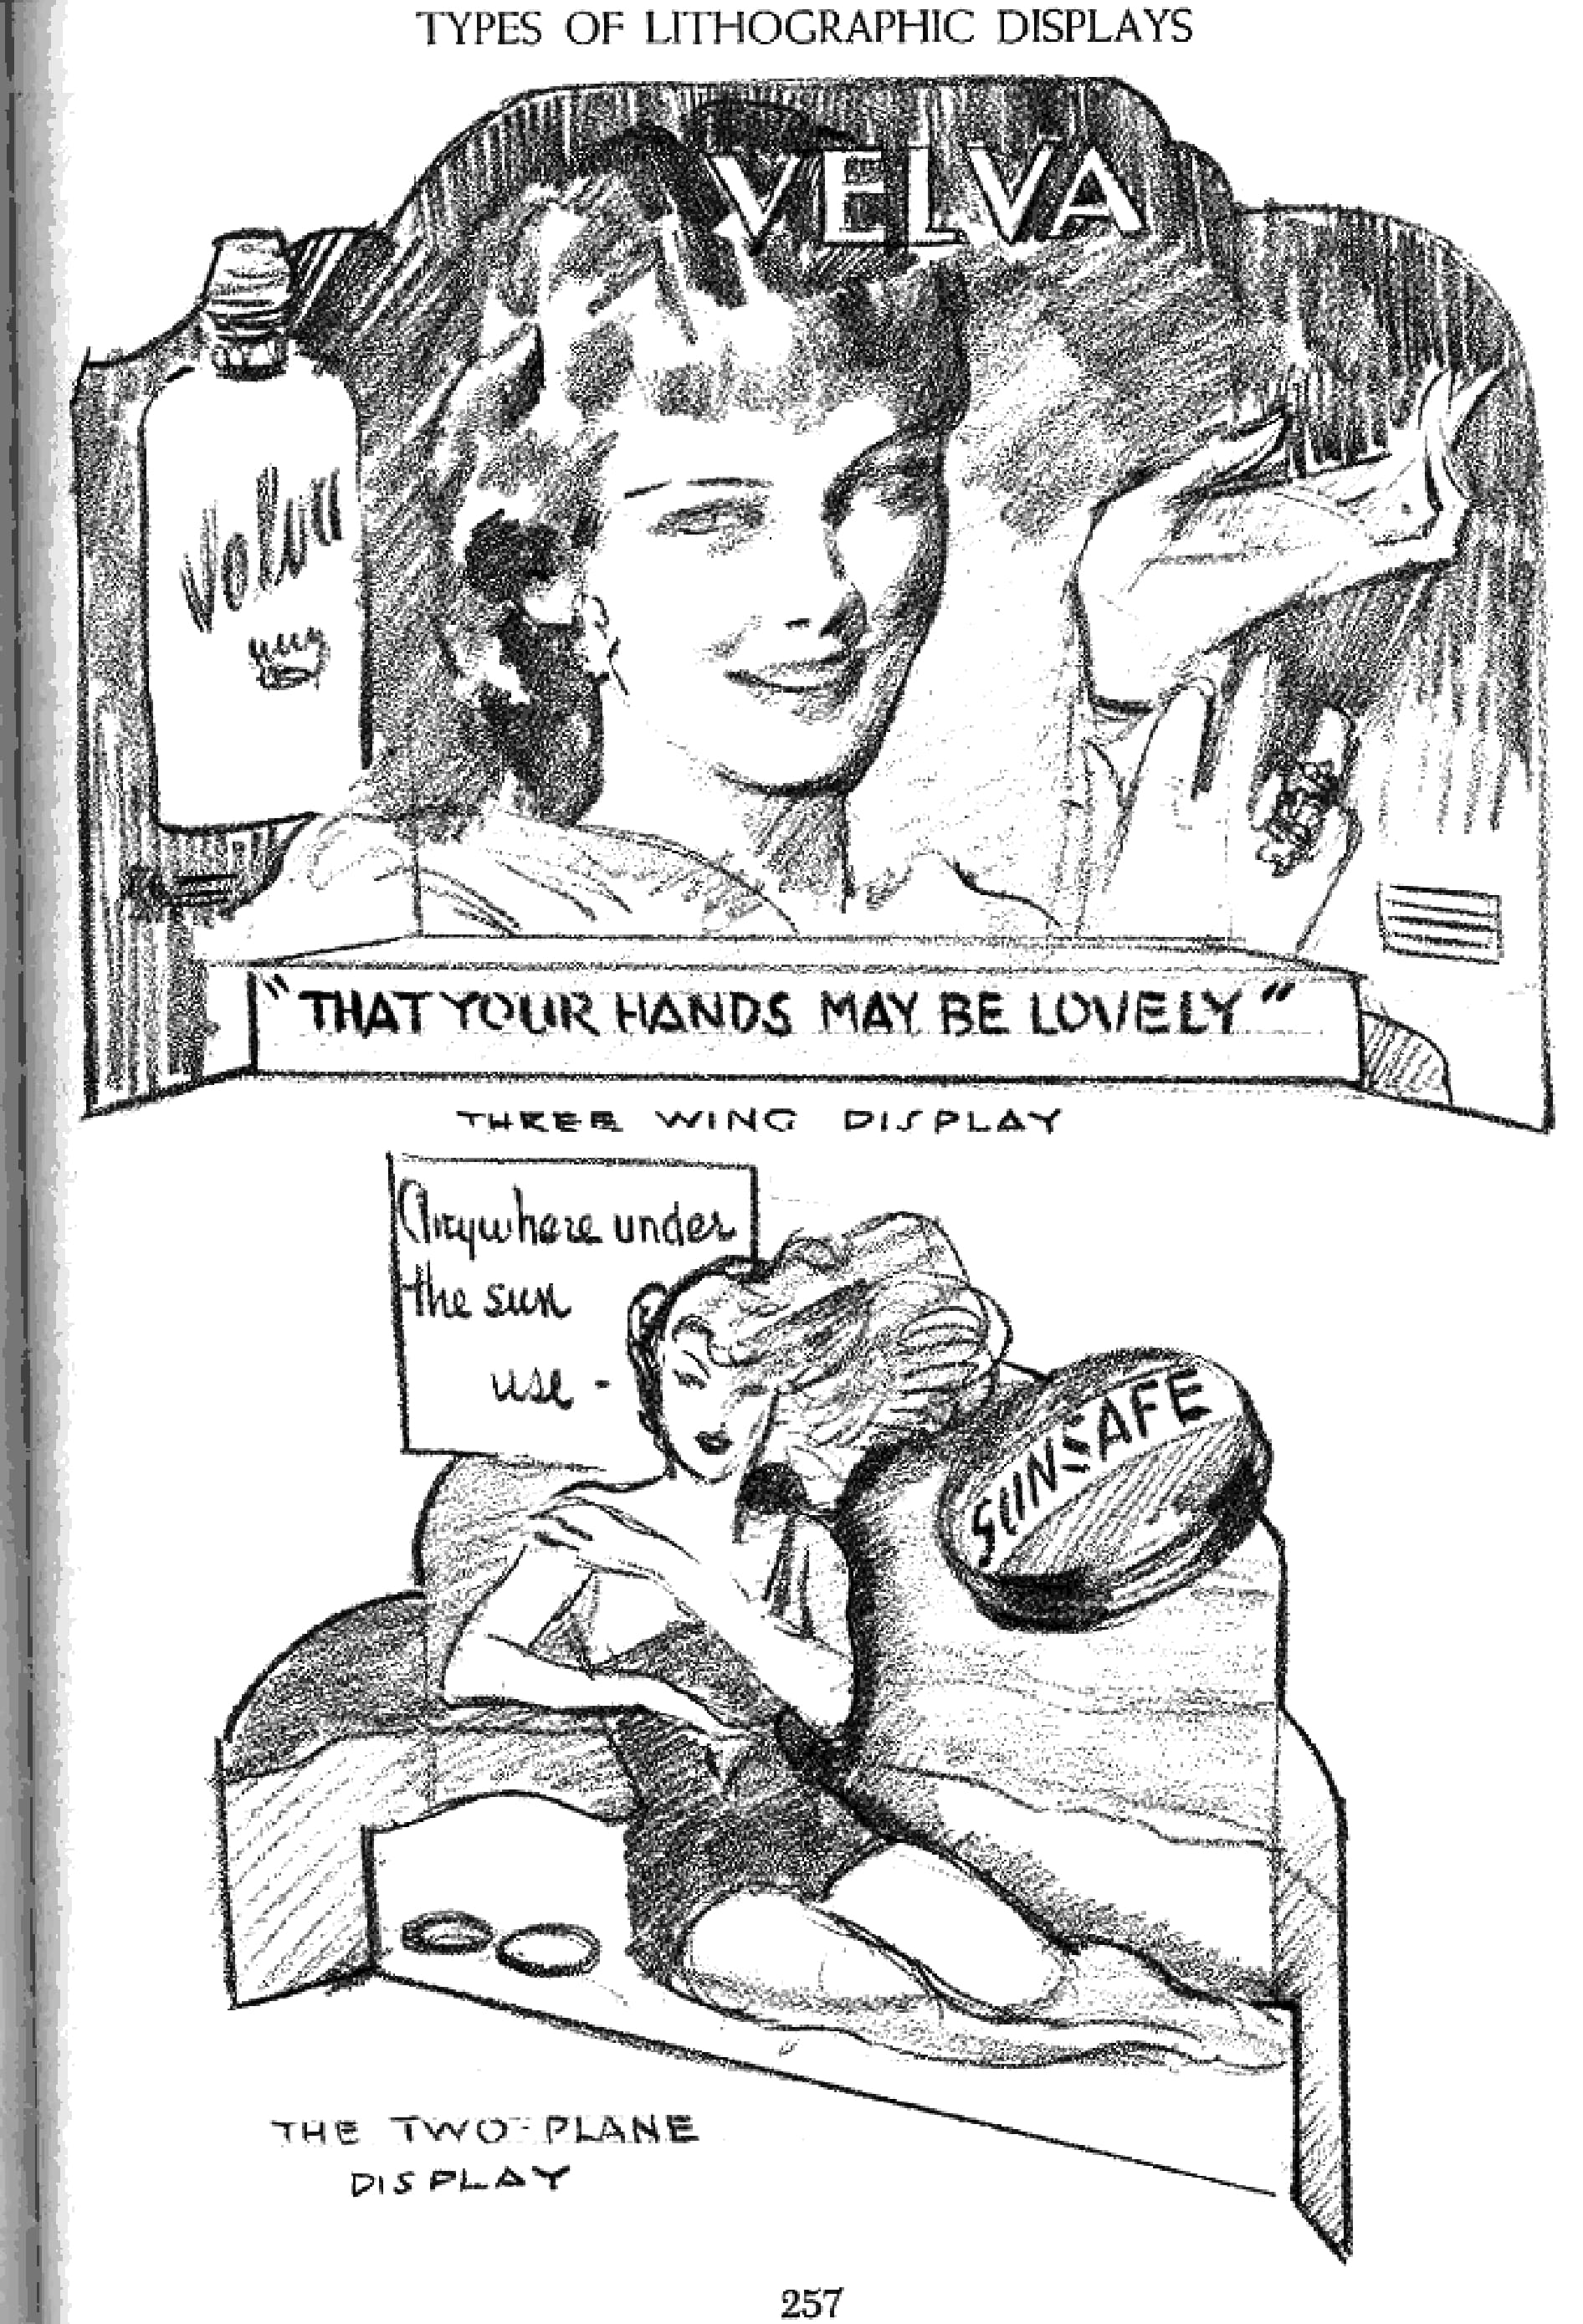 TYPES OF LITHOGRAPHIC DISPLAYS
VELVA
Velva
"THAT YOUR HANDS MAY BE LOVELY"
THREE WING DISPLAY
Anywhere under
the sun
use -
SUNSAFE
THE TWO-PLANE
DISPLAY
257